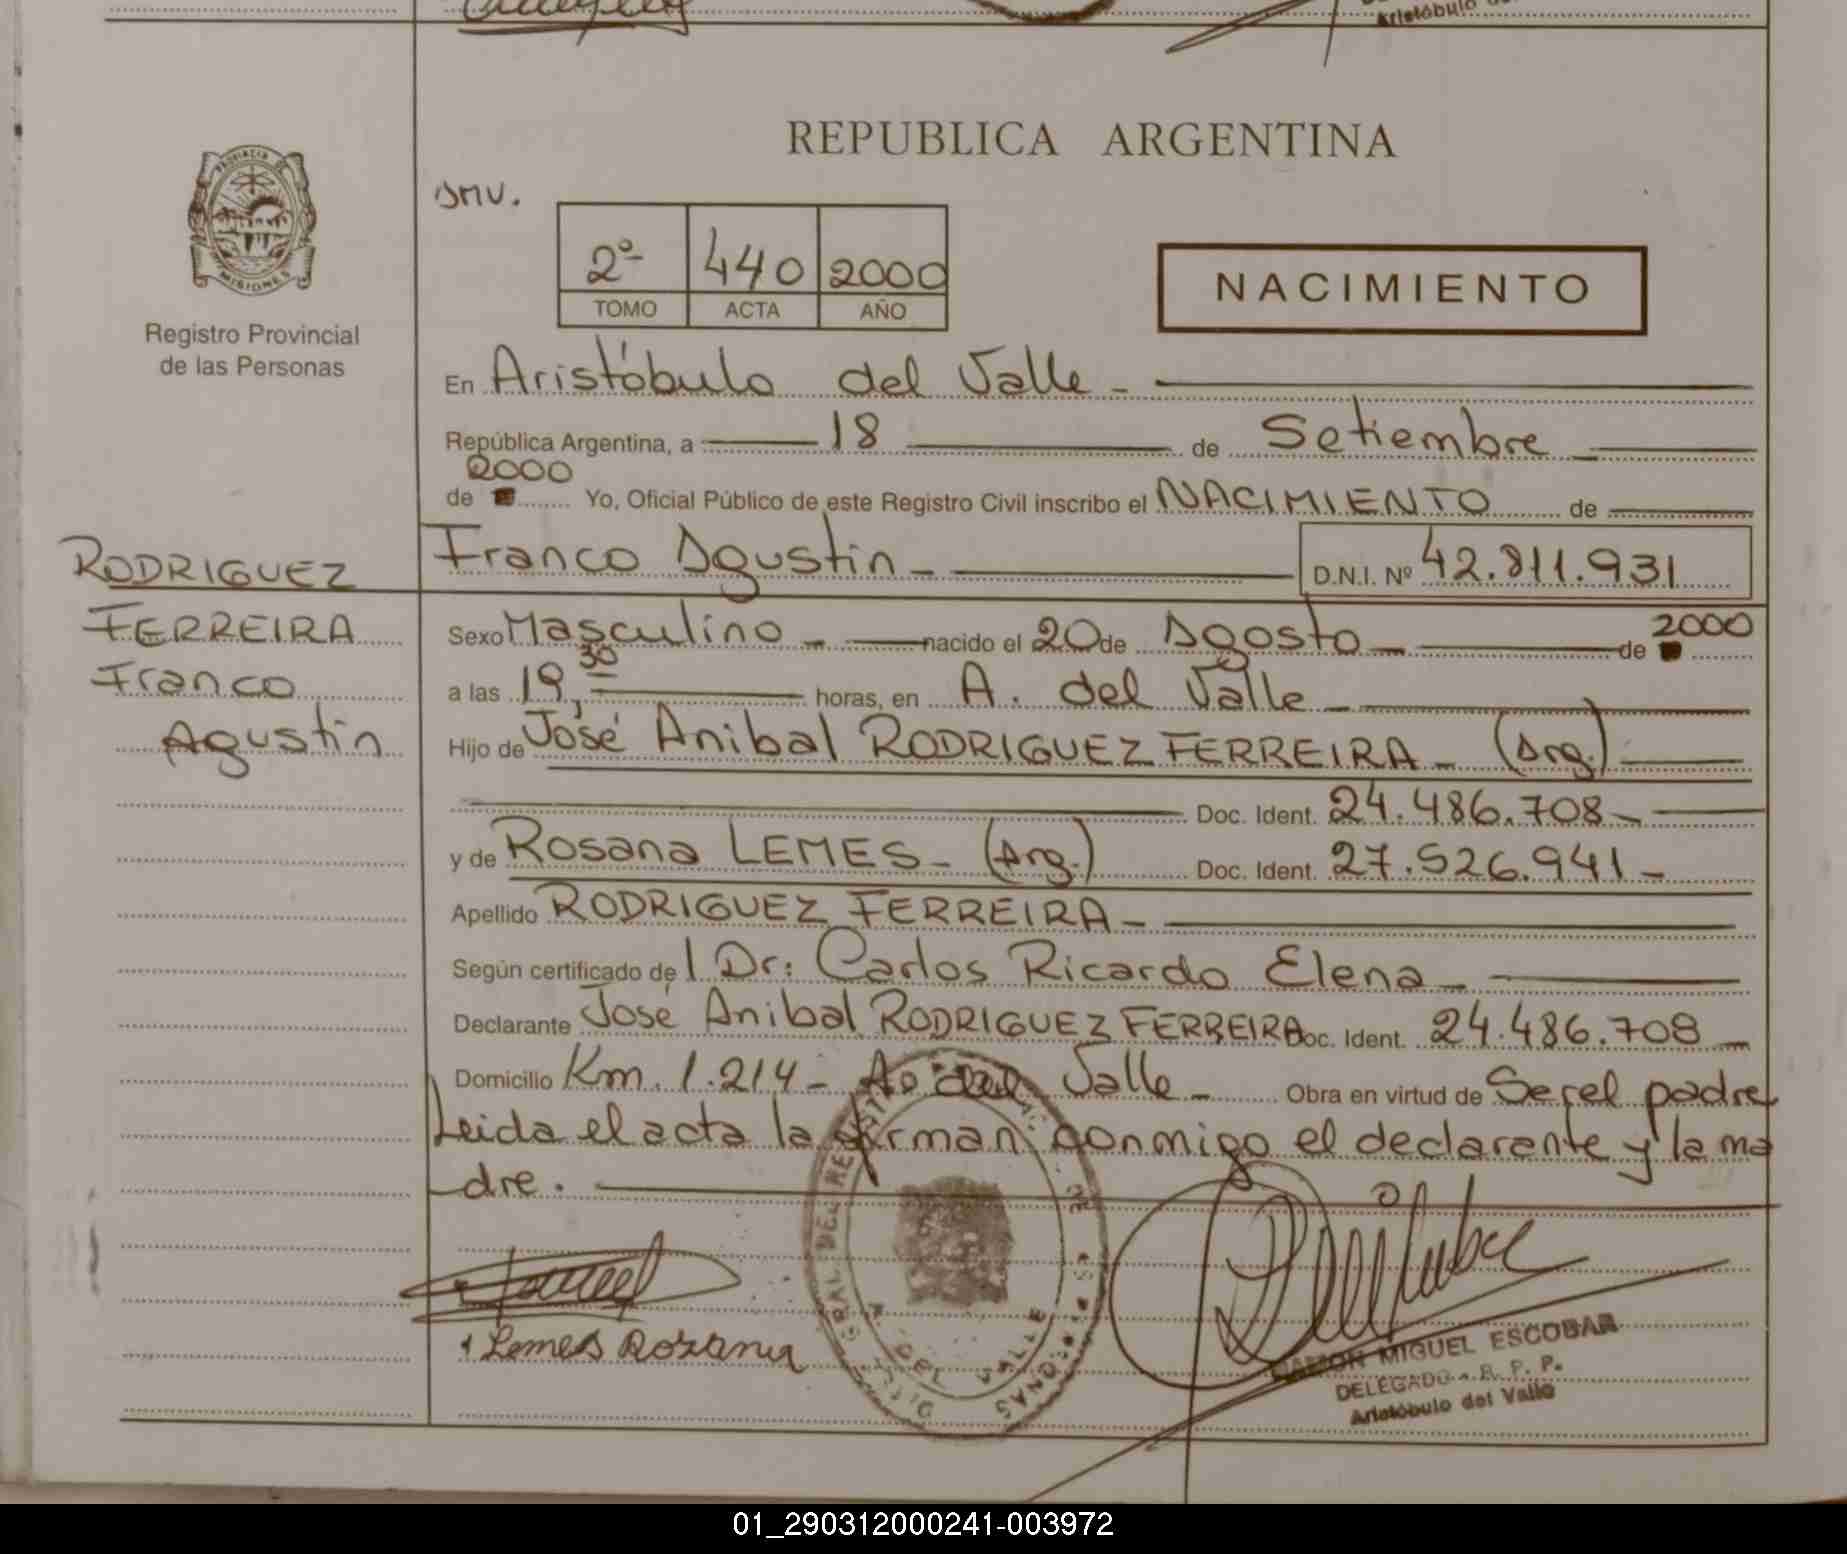 Aristóbulo
REPUBLICA ARGENTINA
PROVINCIA DE
MISIONES
Registro Provincial
de las Personas
SMV.
2º 440 2000
TOMO ACTA AÑO
NACIMIENTO
En Aristóbulo del Valle -
República Argentina, a 18 de Setiembre
2000
de Yo, Oficial Público de este Registro Civil inscribo el NACIMIENTO de
Franco Agustin - D.N.I. Nº 42.811.931
RODRIGUEZ
FERREIRA
Franco
Agustin
Sexo Masculino - nacido el 20 de Agosto - de 2000
a las 19,30 horas, en A. del Valle -
Hijo de José Anibal RODRIGUEZ FERREIRA - (Arg.)
Doc. Ident. 24.486.708 -
y de Rosana LEMES - (Arg.) Doc. Ident. 27.526.941 -
Apellido RODRIGUEZ FERREIRA -
Según certificado del Dr: Carlos Ricardo Elena -
Declarante José Anibal RODRIGUEZ FERREIRA Doc. Ident. 24.486.708 -
Domicilio Km. 1.214 - Aº del Valle - Obra en virtud de Ser el padre
Leida el acta la firman conmigo el declarante y la ma
dre.
Lemes Rosana
A. DEL VALLE
RAMON MIGUEL ESCOBAR
DELEGADO - R. P. P.
Aristóbulo del Valle
01_290312000241-003972